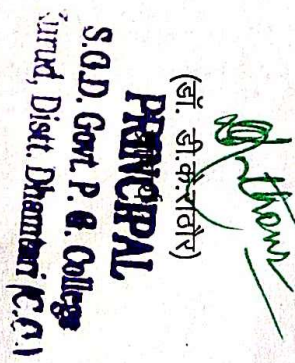 (डॉ. डी.के.राठौर)
PRINCIPAL
S.G.D. Govt. P. G. College
Kurud, Distt. Dhamtari (C.G.)